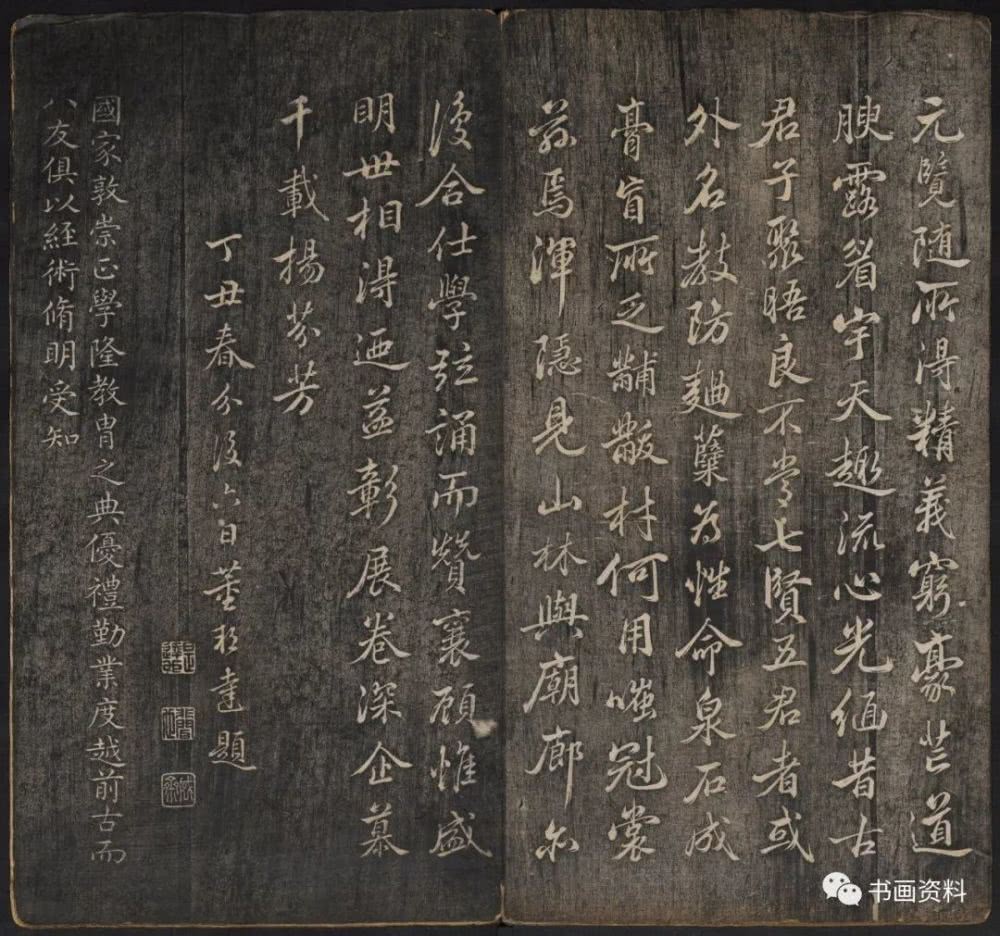 元覽随所得精義窮豪芒道
腴露眉宇天趣流心光緬昔古
君子聚晤良不常七賢五君者或
外名教防麯蘖為性命泉石成
膏肓所乏黼黻材何用嗤冠裳
茲焉渾隱見山林與廟廊亦
復合仕學弦誦而贊襄顧惟盛
明世相得迺益彰展卷深企慕
千載揚芬芳
丁丑春分後六日董邦達題
國家敦崇正學隆教胄之典優禮勤業度越前古而
八友俱以経術脩明受知
书画资料